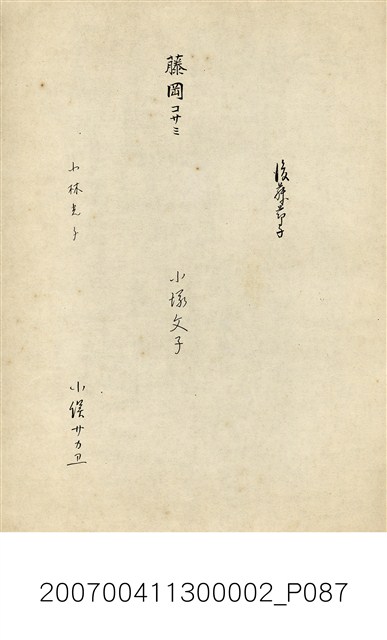 後藤節子
藤岡コサミ
小塚文子
小林光子
小俣サカヱ
200700411300002_P087